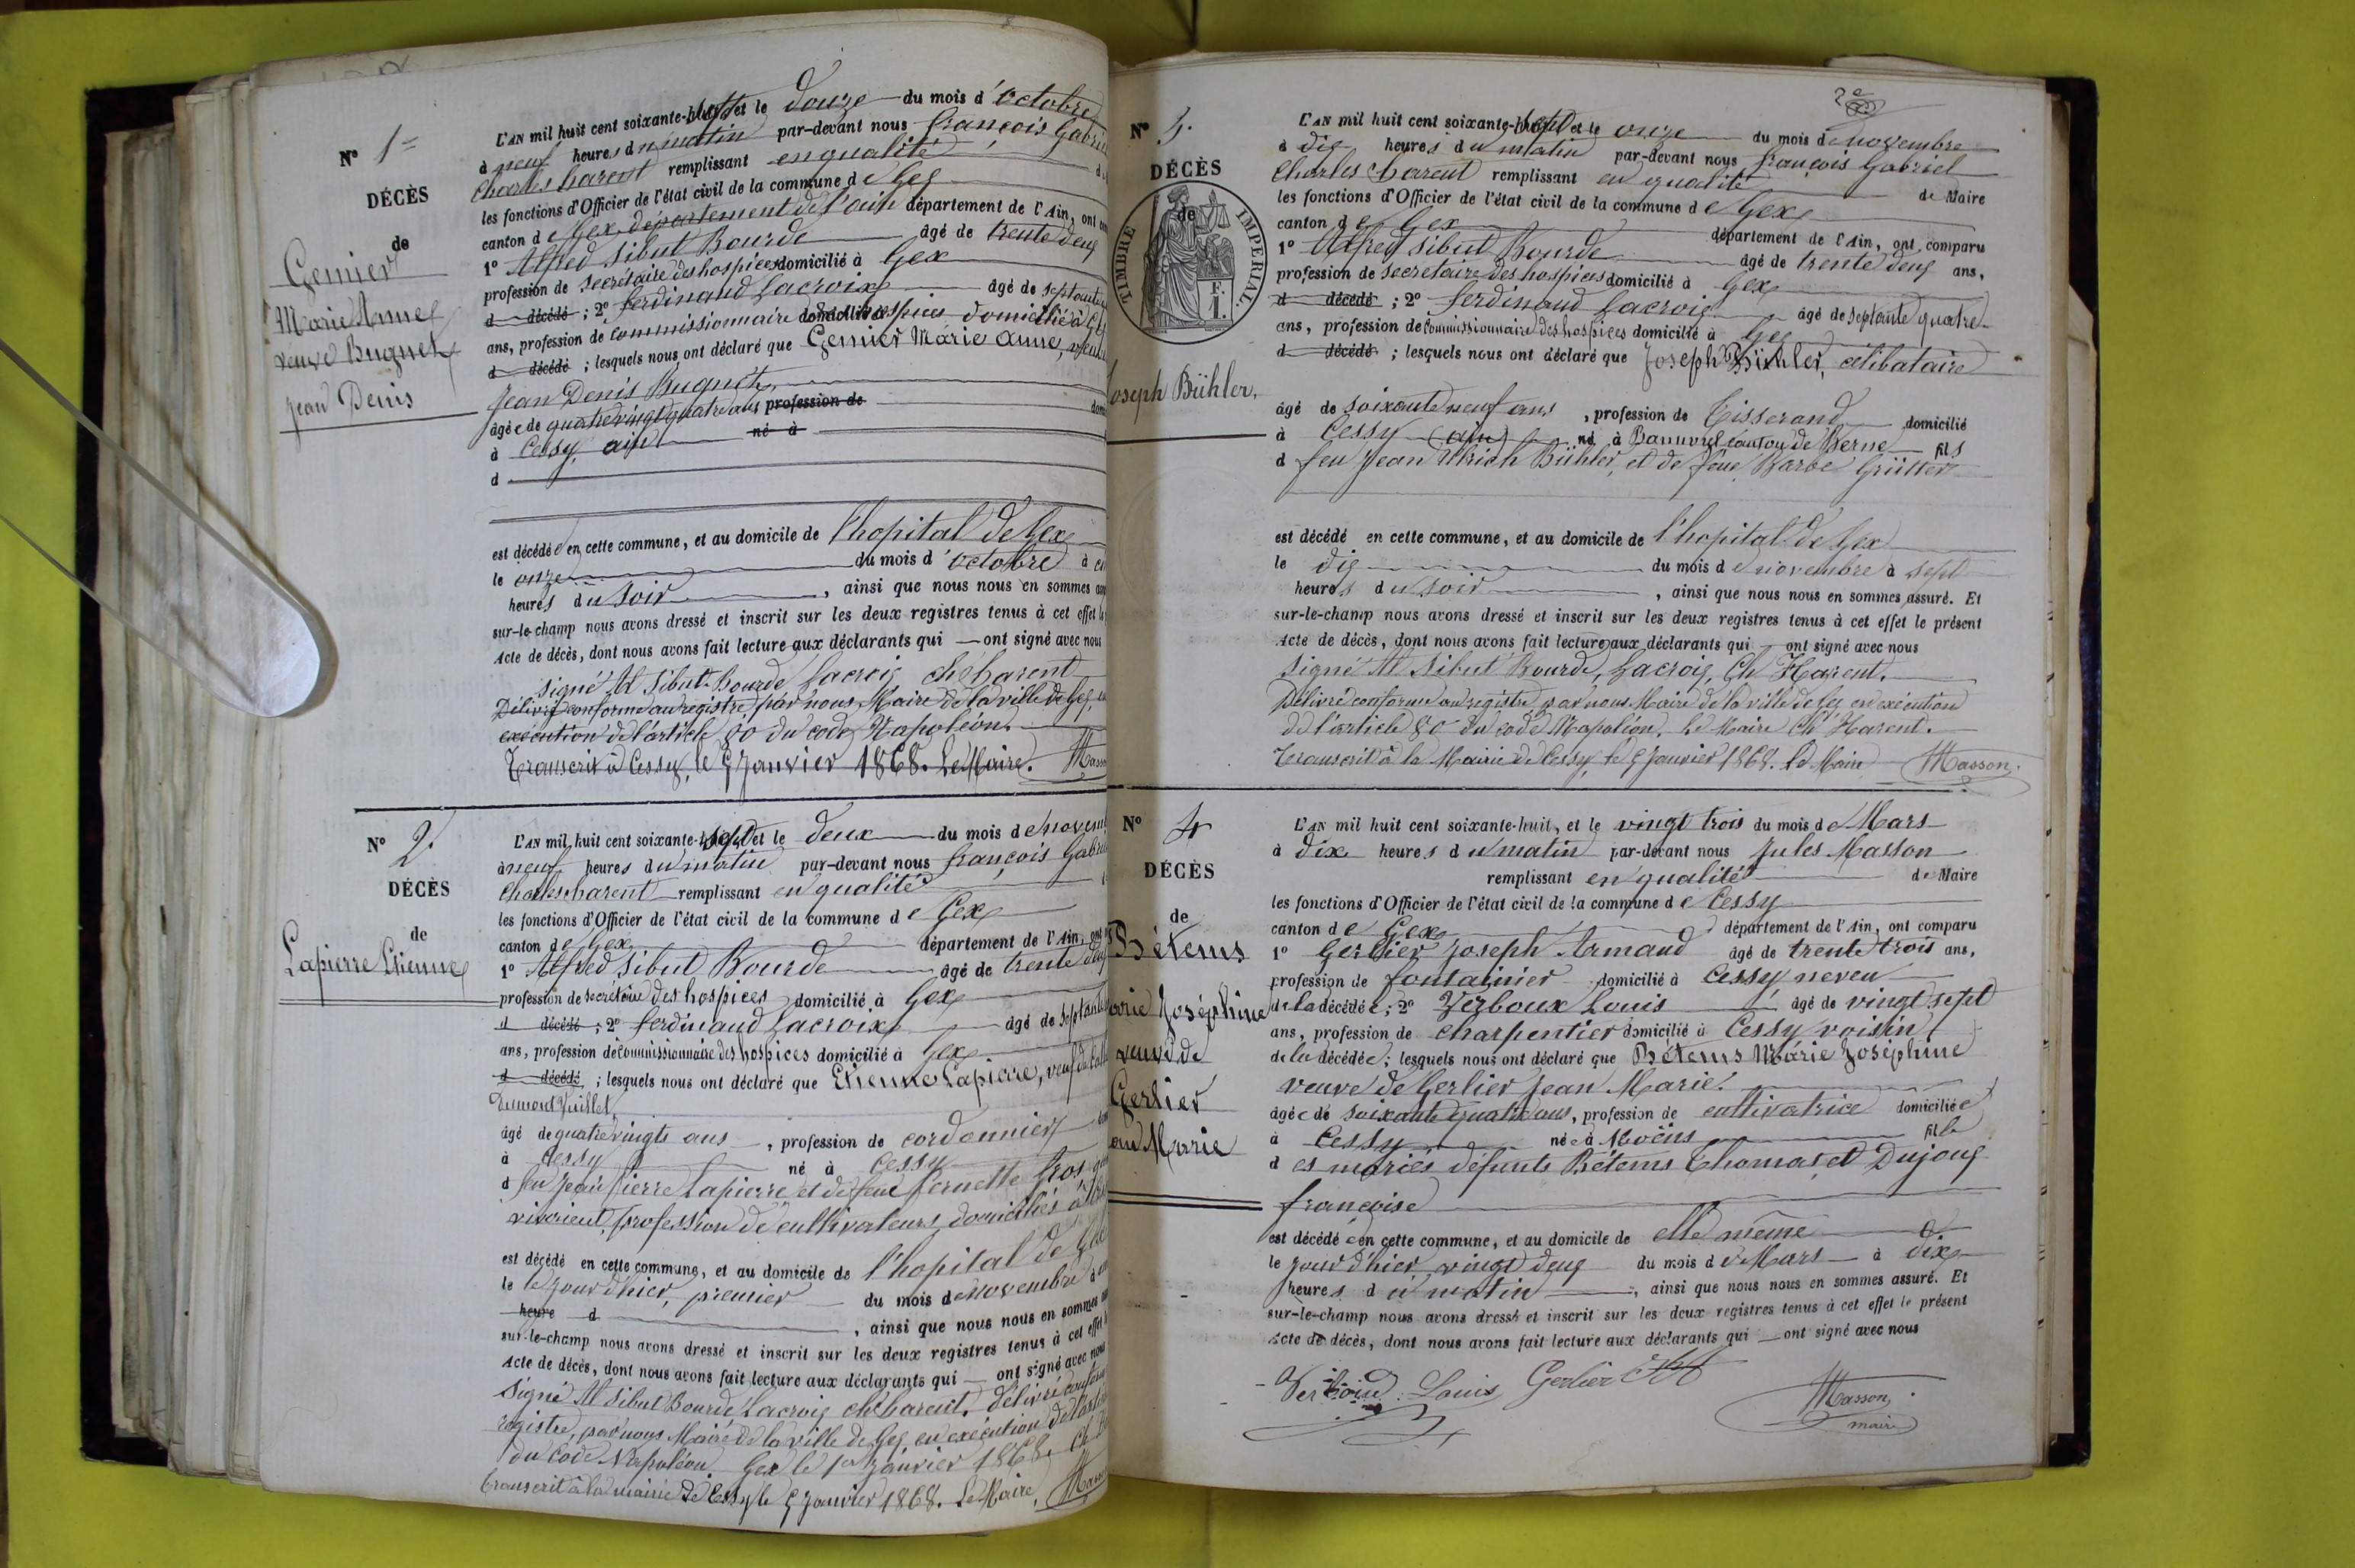 N° 1
DÉCÈS
de
Gernier
Marie Anne
veuve Buguet
Jean Denis
L'AN mil huit cent soixante-sept et le douze du mois d'octobre
à neuf heures du matin par-devant nous françois Gabriel
Charles harent remplissant en qualité
les fonctions d'Officier de l'état civil de la commune de Gex
canton de Gex, département de l'ain département de l'Ain, ont
1° Alfred Sibut Bourde âgé de trente deux
profession de secrétaire des hospices domicilié à Gex
d décédé ; 2° ferdinand Lacroix âgé de septante
ans, profession de commissionnaire des hospices domicilié à
d décédé ; lesquels nous ont déclaré que Gernier Marie anne,
Jean Denis Buguet,
âgée de quatre vingt quatre ans profession de
à Cessy, ain né à
d
est décédée en cette commune, et au domicile de l'hopital de Gex
le onze du mois d'octobre à
heures du soir , ainsi que nous nous en sommes
sur-le-champ nous avons dressé et inscrit sur les deux registres tenus à cet effet
Acte de décès, dont nous avons fait lecture aux déclarants qui — ont signé avec nous
signé Al Sibut-Bourde Lacroix ch harent
Délivré conforme au registre, par nous Maire de la ville de Gex, en
exécution de l'article 80 du code Napoléon.
Transcrit à Cessy, le 5 Janvier 1868. Le Maire. Masson
N° 2.
DÉCÈS
de
Lapierre Etienne
L'AN mil huit cent soixante-sept et le deux du mois de
à neuf heures du matin par-devant nous françois
Charles harent remplissant en qualité
les fonctions d'Officier de l'état civil de la commune de Gex
canton de Gex département de l'Ain,
1° Alfred Sibut Bourde âgé de trente deux
profession de secrétaire des hospices domicilié à Gex
d décédé ; 2° ferdinand Lacroix âgé de
ans, profession de commissionnaire des hospices domicilié à Gex
d décédé ; lesquels nous ont déclaré que Etienne Lapierre, veuf de
Dumont Vuillet,
âgé de quatre vingts ans , profession de cordonnier
à Cessy né à Cessy
d feu Jean pierre Lapierre et de feue pernette Gros
vivaient, profession de cultivateurs, domiciliés à
est décédé en cette commune, et au domicile de l'hopital de Gex
le le jour d'hier, premier du mois de novembre à
heure d , ainsi que nous nous en sommes
sur-le-champ nous avons dressé et inscrit sur les deux registres tenus à cet effet
Acte de décès, dont nous avons fait lecture aux déclarants qui — ont signé avec nous
Signé Al Sibut Bourde Lacroix ch harent. délivré
registre, par nous Maire de la ville de Gex, en exécution de
du Code Napoléon. Gex le 1er Janvier 1868.
transcrit à la mairie de Cessy le 5 Janvier 1868. Le Maire, Masson
2e
N° 3.
DÉCÈS
de
TIMBRE IMPERIAL
F.
1.
Joseph Bühler,
L'AN mil huit cent soixante-sept et le onze du mois de novembre
à dix heures du matin par-devant nous françois Gabriel
Charles harent remplissant en qualité de Maire
les fonctions d'Officier de l'état civil de la commune de Gex
canton de Gex département de l'Ain, ont comparu
1° Alfred Sibut Bourde âgé de trente deux ans,
profession de secretaire des hospices domicilié à Gex
d décédé ; 2° ferdinand Lacroix âgé de septante quatre
ans, profession de commissionnaire des hospices domicilié à Gex
d décédé ; lesquels nous ont déclaré que Joseph Bühler, célibataire
âgé de soixante neuf ans , profession de Tisserand domicilié
à Cessy (ain) né à canton de Berne fils
d feu Jean Ulrich Bühler, et de feue Barbe Grütter
est décédé en cette commune, et au domicile de l'hopital de Gex
le dix du mois de novembre à sept
heures du soir , ainsi que nous nous en sommes assuré. Et
sur-le-champ nous avons dressé et inscrit sur les deux registres tenus à cet effet le présent
Acte de décès, dont nous avons fait lecture aux déclarants qui — ont signé avec nous
Signé Al Sibut Bourde, Lacroix, Ch Harent.
Délivré conforme au registre par nous Maire de la ville de Gex en exécution
de l'article 80 du code Napoléon. Le Maire Ch Harent.
Transcrit à la Mairie de Cessy, le 5 Janvier 1868. Le Maire Masson
N° 4
DÉCÈS
de
Bétems
Marie Joséphine
veuve de
Gerlier
Jean Marie
L'AN mil huit cent soixante-huit, et le vingt trois du mois de Mars
à dix heures du matin par-devant nous Jules Masson
remplissant en qualité de Maire
les fonctions d'Officier de l'état civil de la commune de Cessy
canton de Gex département de l'Ain, ont comparu
1° Gerlier Joseph Armand âgé de trente trois ans,
profession de fontainier domicilié à Cessy, neveu
de la décédée; 2° Verboux Louis âgé de vingt sept
ans, profession de charpentier domicilié à Cessy voisin
de la décédée; lesquels nous ont déclaré que Bétems Marie Joséphine
veuve de Gerlier Jean Marie.
âgée de soixante quatre ans, profession de cultivatrice domiciliée
à Cessy née à Moëns fille
d es mariés défunts Bétems Thomas et Dujoux
françoise
est décédée en cette commune, et au domicile de elle même
le jour d'hier vingt deux du mois de Mars à dix
heures du matin , ainsi que nous nous en sommes assuré. Et
sur-le-champ nous avons dressé et inscrit sur les deux registres tenus à cet effet le présent
Acte de décès, dont nous avons fait lecture aux déclarants qui — ont signé avec nous
Verboux Louis Gerlier Masson
maire